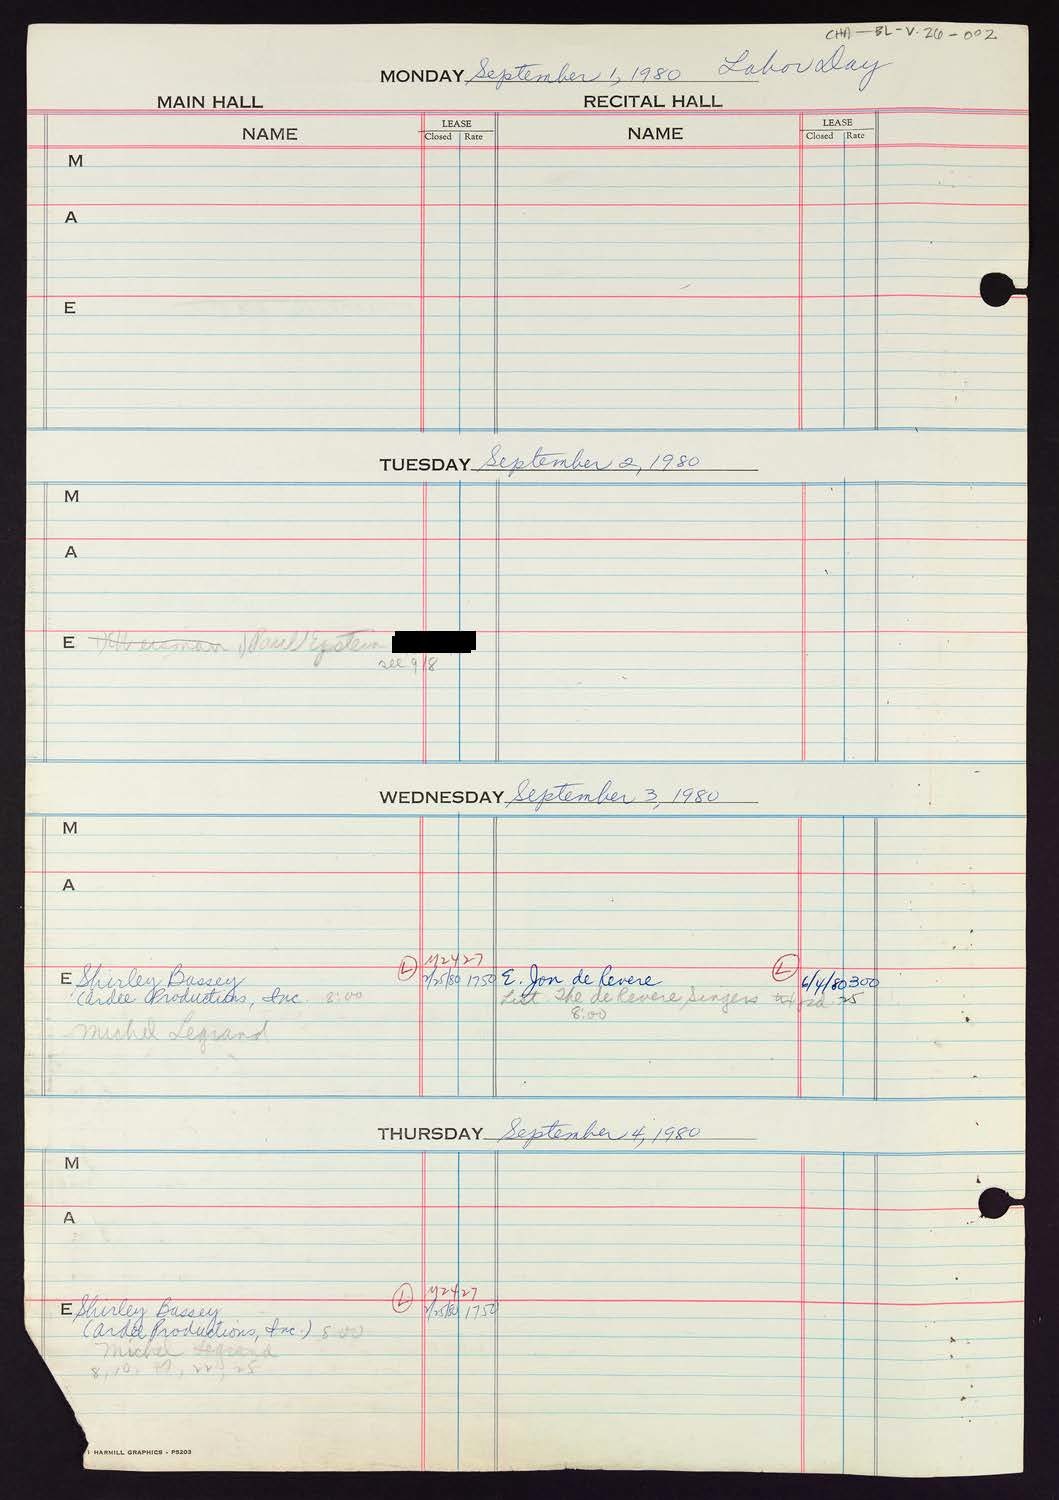 CHA-BL-V.26-002
MONDAY September 1, 1980 Labor Day
MAIN HALL RECITAL HALL
NAME LEASE Closed Rate NAME LEASE Closed Rate
M
A
E
TUESDAY September 2, 1980
M
A
E Paul Epstein
see 9/8
WEDNESDAY September 3, 1980
M
A
E Shirley Bassey L 2/25/80 1750 E. Jon de Revere L 6/4/80 300
(Ardee Productions, Inc. 8:00 The de Revere Singers 25
8:00
Michel Legrand
THURSDAY September 4, 1980
M
A
E Shirley Bassey L 2/25/80 1750
(Ardee Productions, Inc.) 8:00
Michel Legrand
HARMILL GRAPHICS - P5203